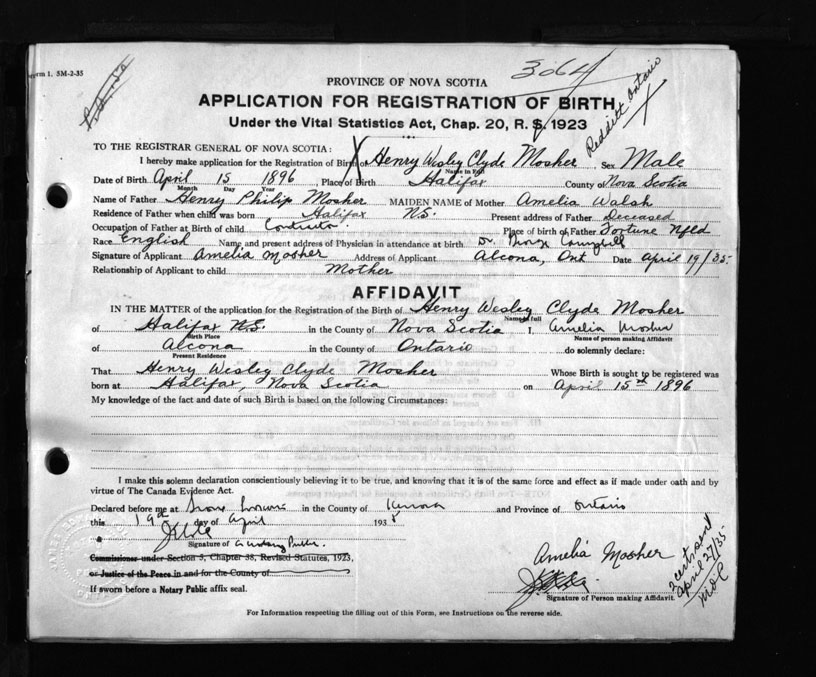 Form 1. 5M-2-35
364
Redditt Ontario
PROVINCE OF NOVA SCOTIA
APPLICATION FOR REGISTRATION OF BIRTH
Under the Vital Statistics Act, Chap. 20, R. S. 1923
TO THE REGISTRAR GENERAL OF NOVA SCOTIA:
I hereby make application for the Registration of Birth of Henry Wesley Clyde Mosher Sex Male
Name in Full
Date of Birth April 15 1896 Place of Birth Halifax County of Nova Scotia
Month Day Year
Name of Father Henry Philip Mosher MAIDEN NAME of Mother Amelia Walsh
Residence of Father when child was born Halifax NS. Present address of Father Deceased
Occupation of Father at Birth of child Conductor Place of birth of Father Fortune Nfld
Race English Name and present address of Physician in attendance at birth Dr. George Campbell
Signature of Applicant Amelia Mosher Address of Applicant Alcona, Ont Date April 19/35
Relationship of Applicant to child Mother
AFFIDAVIT
IN THE MATTER of the application for the Registration of the Birth of Henry Wesley Clyde Mosher
Name in full
of Halifax N.S. in the County of Nova Scotia I, Amelia Mosher
Birth Place Name of person making Affidavit
of Alcona in the County of Ontario do solemnly declare:
Present Residence
That Henry Wesley Clyde Mosher Whose Birth is sought to be registered was
born at Halifax, Nova Scotia on April 15th 1896
My knowledge of the fact and date of such Birth is based on the following Circumstances:
I make this solemn declaration conscientiously believing it to be true, and knowing that it is of the same force and effect as if made under oath and by
virtue of The Canada Evidence Act.
Declared before me at Sioux Lookout in the County of Kenora and Province of Ontario
this 19th day of April 1935
Signature of a Notary Public.
Commissioner under Section 5, Chapter 38, Revised Statutes, 1923,
or Justice of the Peace in and for the County of
If sworn before a Notary Public affix seal.
Amelia Mosher
Signature of Person making Affidavit.
2 certs sent
April 27/35
For Information respecting the filling out of this Form, see Instructions on the reverse side.